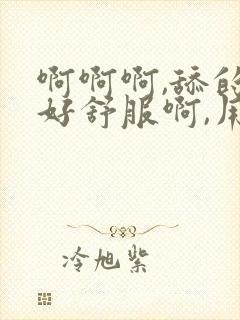 啊啊啊,舔的
好舒服啊,用
冷旭紫